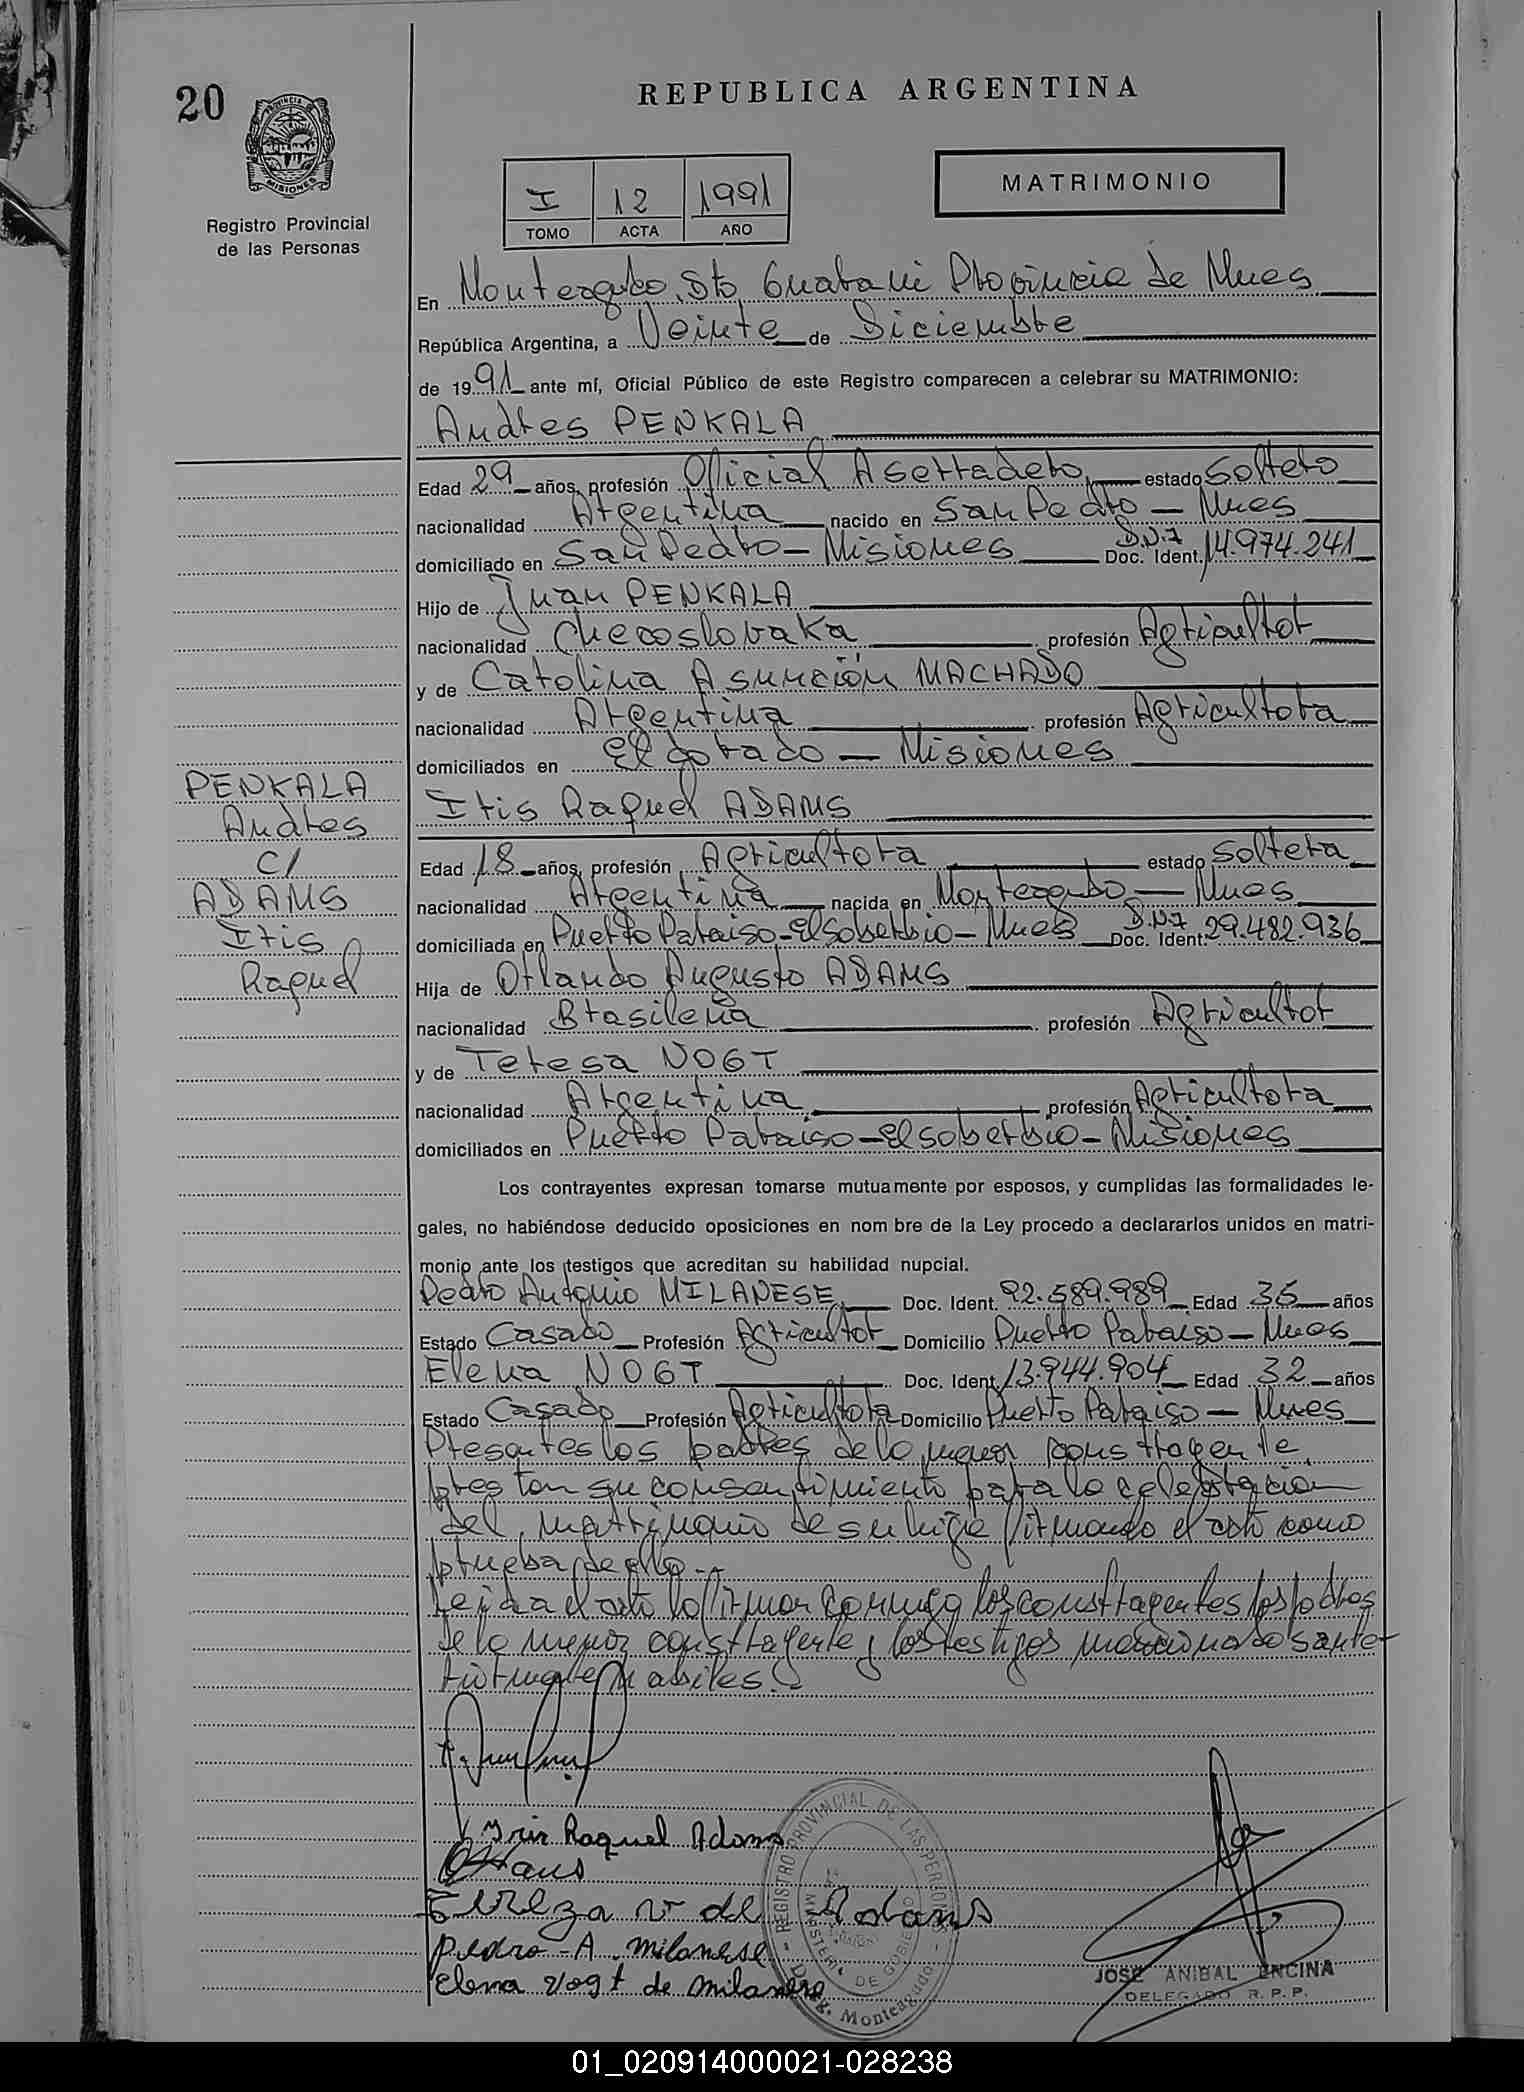 20
REPUBLICA ARGENTINA
PROVINCIA DE
MISIONES
Registro Provincial
de las Personas
MATRIMONIO
I 12 1991
TOMO ACTA AÑO
En Monteagudo, Dto, Guarani Provincia de Mnes
República Argentina, a Veinte de Diciembre
de 1991 ante mí, Oficial Público de este Registro comparecen a celebrar su MATRIMONIO:
Andres PENKALA
Edad 29 años, profesión Oficial Aserradero estado Soltero
nacionalidad Argentina nacido en San Pedro - Mnes
domiciliado en San Pedro - Misiones D.N.I Doc. Ident. 14.974.241
Hijo de Juan PENKALA
nacionalidad Checoslovaka profesión Agricultor
y de Catolina Asunción MACHADO
nacionalidad Argentina profesión Agricultora
domiciliados en Eldorado - Misiones
PENKALA
Andres
C/
ADAMS
Iris
Raquel
Iris Raquel ADAMS
Edad 18 años, profesión Agricultora estado Soltera
nacionalidad Argentina nacida en Monteagudo - Mnes
domiciliada en Puerto Paraiso - El soberbio - Mnes D.N.I Doc. Ident. 29.482.936
Hija de Orlando Augusto ADAMS
nacionalidad Brasileña profesión Agricultor
y de Teresa VOGT
nacionalidad Argentina profesión Agricultora
domiciliados en Puerto Paraiso - El soberbio - Misiones
Los contrayentes expresan tomarse mutuamente por esposos, y cumplidas las formalidades le-
gales, no habiéndose deducido oposiciones en nom bre de la Ley procedo a declararlos unidos en matri-
monio ante los testigos que acreditan su habilidad nupcial.
Pedro Antonio MILANESE Doc. Ident. 92.589.989 Edad 36 años
Estado Casado Profesión Agricultor Domicilio Puerto Paraiso - Mnes
Elena VOGT Doc. Ident. 13.944.904 Edad 32 años
Estado Casado Profesión Agricultora Domicilio Puerto Paraiso - Mnes
Presentes los padres de la menor constrayente
prestan su consentimiento para la celebracion
del matrimonio de su hija firmando el acto como
prueba de ello.-
Leida el acto lo firman conmigo los constrayentes los padres
de la menor constrayente y los testigos mencionados ante-
riormente habiles.
Iris Raquel Adams
de Adams
Pedro - A. Milanese
Elena Vogt de Milanese
REGISTRO PROVINCIAL DE LAS PERSONAS
MINISTERIO DE GOBIERNO
Deleg. Monteagudo
JOSE ANIBAL ENCINA
DELEGADO R. P. P.
01_020914000021-028238